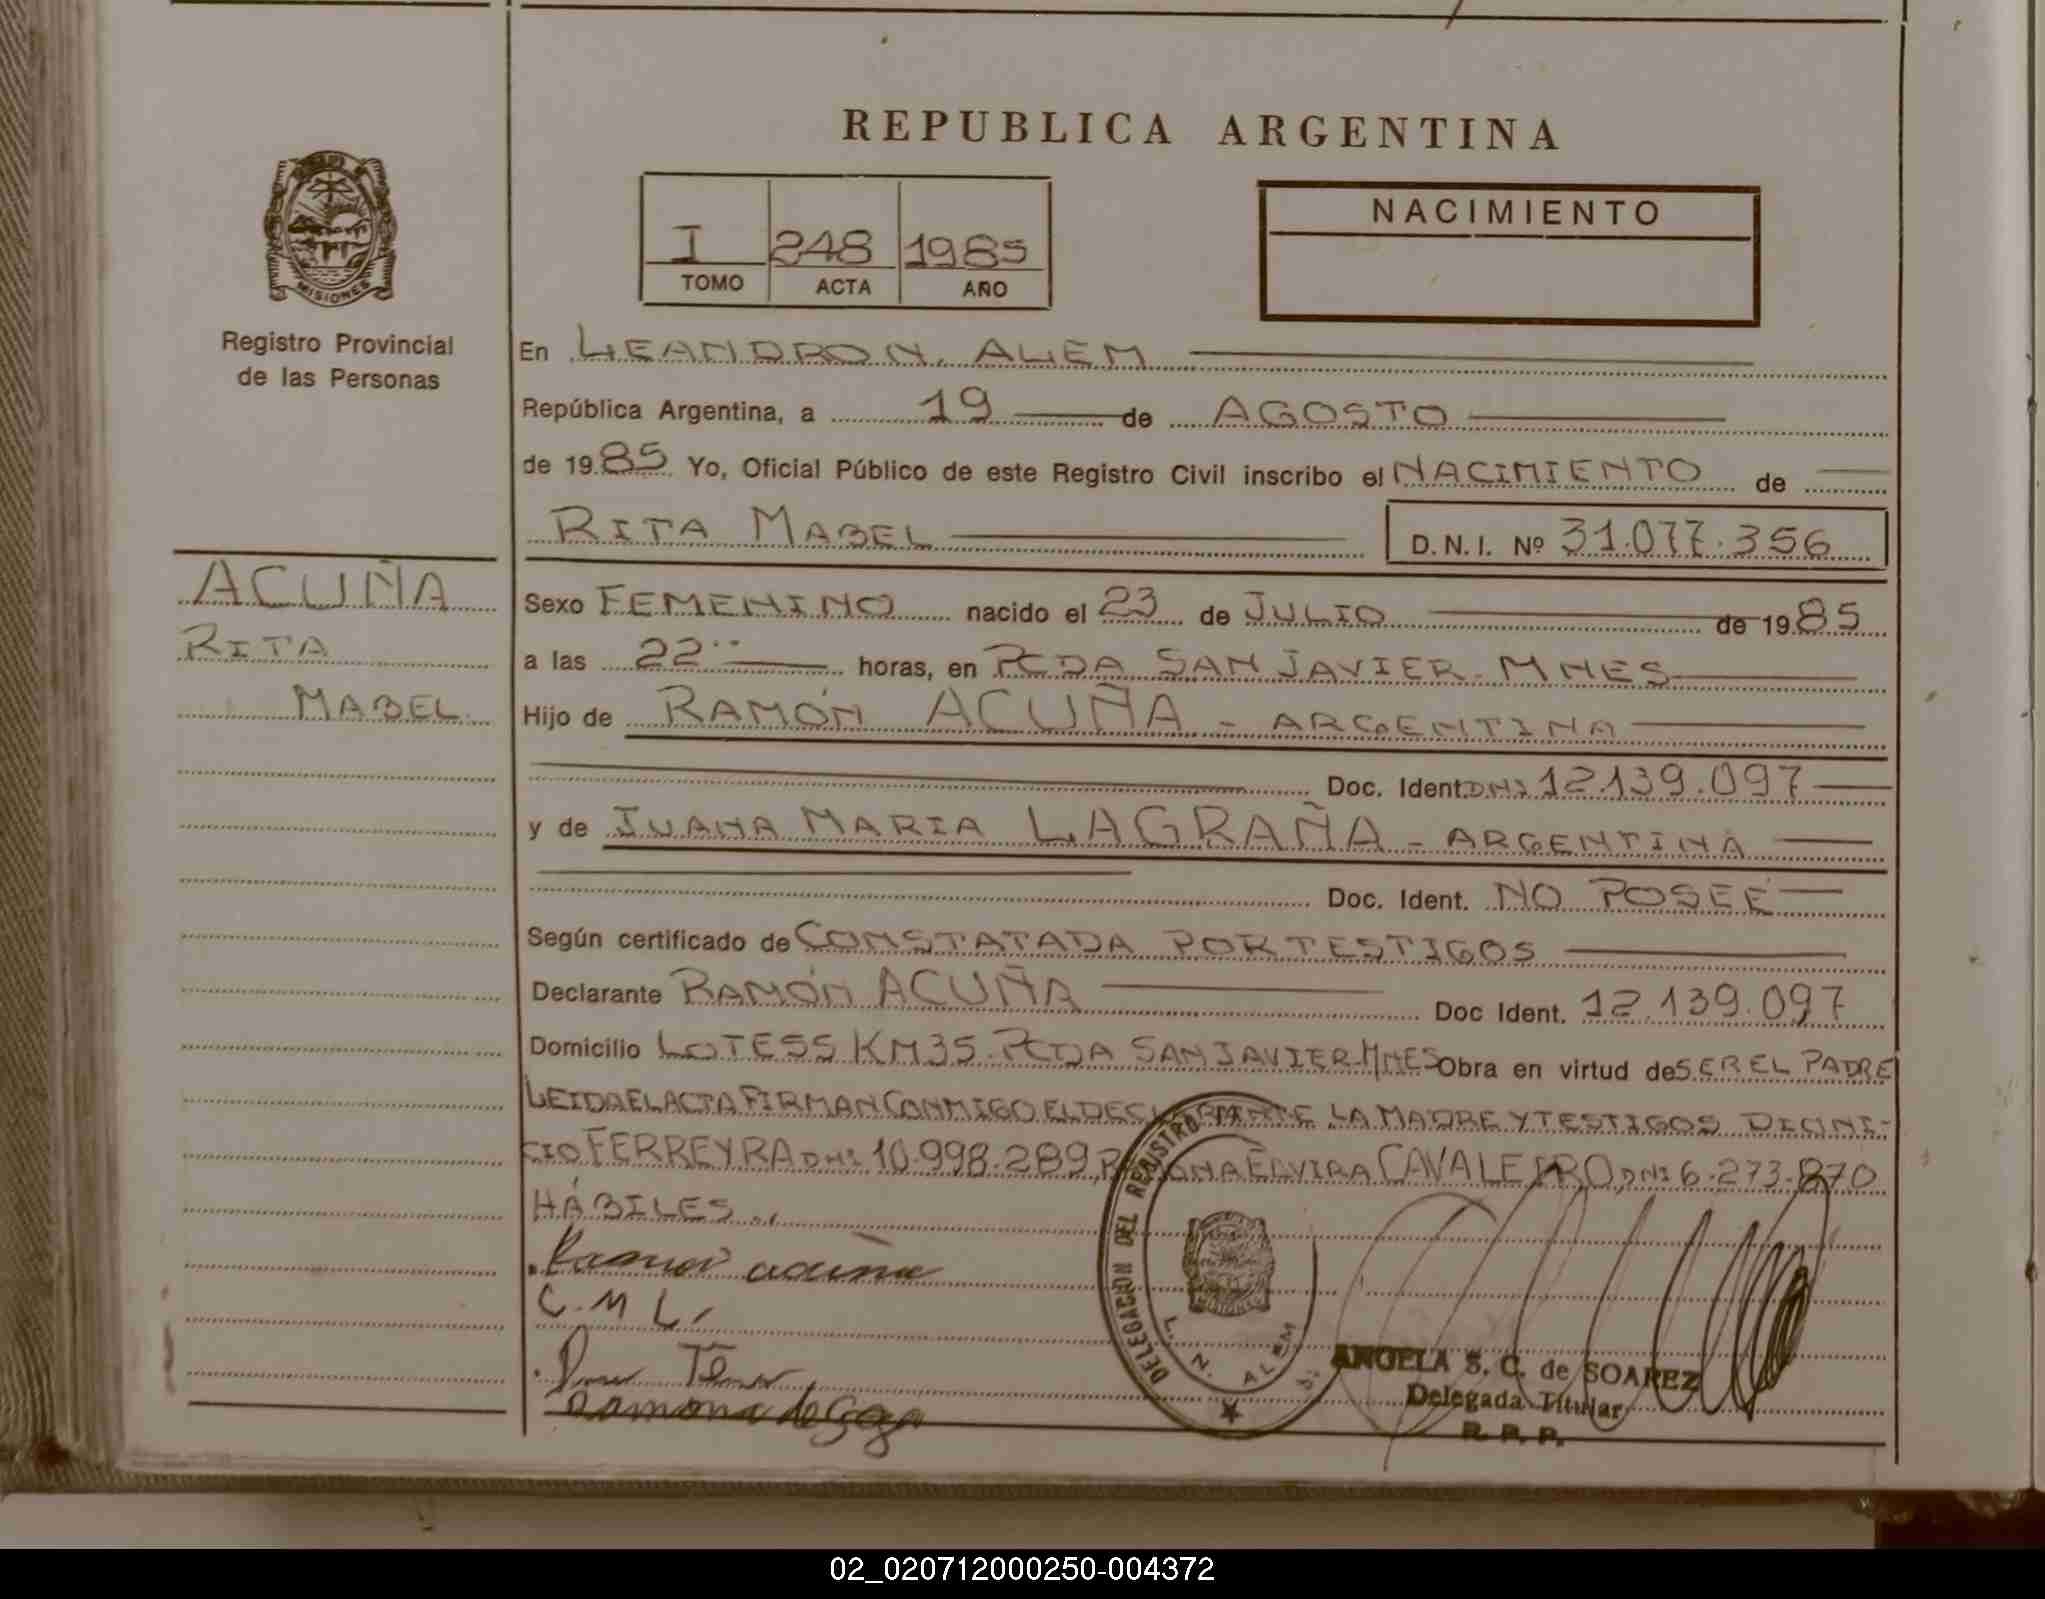 REPUBLICA ARGENTINA
NACIMIENTO
I 248 1985
TOMO ACTA AÑO
MISIONES
Registro Provincial
de las Personas
En LEANDRO N. ALEM
República Argentina, a 19 de AGOSTO
de 1985 Yo, Oficial Público de este Registro Civil inscribo el NACIMIENTO de
RITA MABEL D.N.I. Nº 31.077.356
ACUÑA
RITA
MABEL
Sexo FEMENINO nacido el 23 de JULIO de 1985
a las 22 horas, en PCDA SAN JAVIER - MNES
Hijo de RAMÓN ACUÑA - ARGENTINA
Doc. Ident. DNI 12.139.097
y de JUANA MARIA LAGRAÑA - ARGENTINA
Doc. Ident. NO POSEE
Según certificado de CONSTATADA POR TESTIGOS
Declarante RAMÓN ACUÑA Doc Ident. 12.139.097
Domicilio LOTE 55 KM 35 - PCDA SAN JAVIER - MNES Obra en virtud de SER EL PADRE
LEIDA EL ACTA FIRMAN CONMIGO EL DECLARANTE LA MADRE Y TESTIGOS DIONI-
CIO FERREYRA DNI 10.998.289, RAMONA ELVIRA CAVALEIRO, DNI 6.273.870
HÁBILES
Ramon acuña
C. M L
Ramona de
DELEGACION DEL REGISTRO
L. N. ALEM
MISIONES
ANGELA S. C. de SOAREZ
Delegada Titular
R. P. P.
02_020712000250-004372